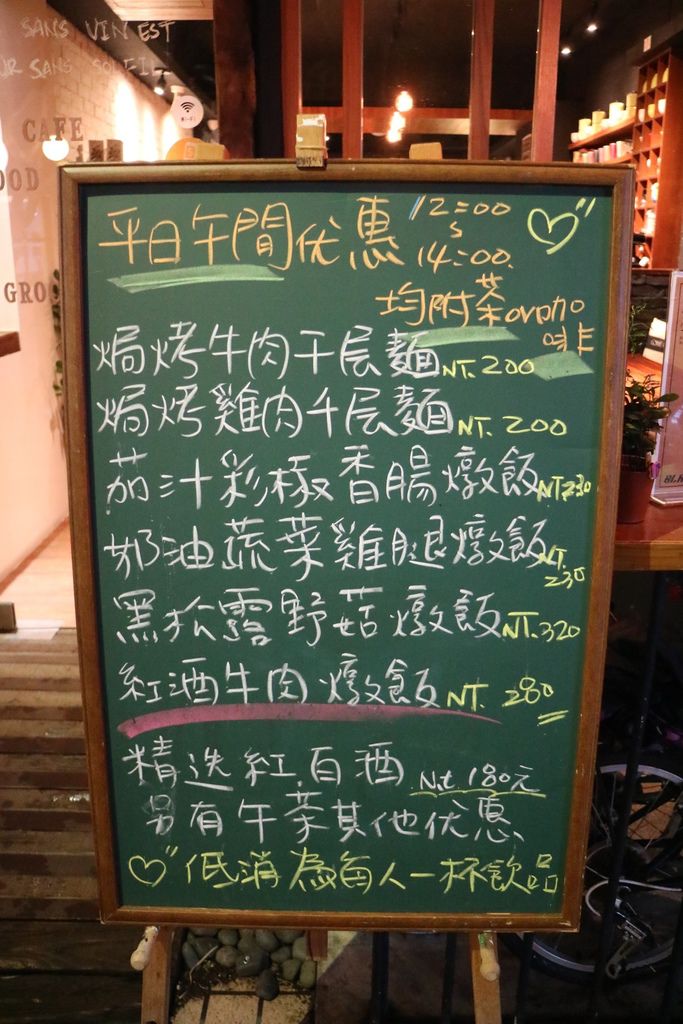 SANS VIN EST
UR SANS SOLEIL
CAFE
OOD
GRO
平日午間优惠 12:00
14:00
均附茶or咖
啡
焗烤牛肉千层麵NT.200
焗烤雞肉千层麵NT.200
茄汁彩椒香腸燉飯NT230
奶油蔬菜雞腿燉飯NT.
230
黑松露野菇燉飯NT.320
紅酒牛肉燉飯NT.280
精选紅.白酒 N.t 180元
另有午茶其他优惠
低消為每人一杯飲品